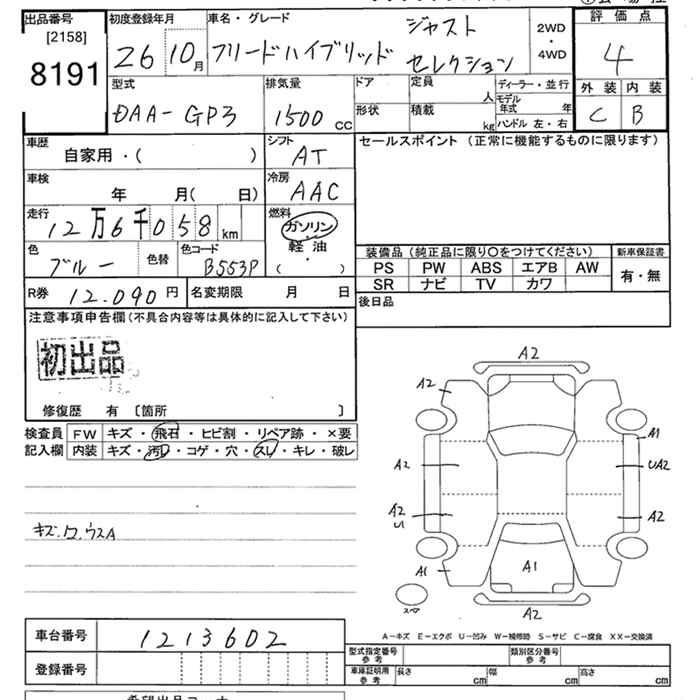 出品番号
[2158]
8191
初度登録年月
26 10月
車名・グレード
フリードハイブリッド ジャスト セレクション
2WD
・
4WD
評価点
4
外装 内装
C B
型式
DAA-GP3
排気量
1500 cc
ドア
定員
人
形状
積載
kg
ディーラー・並行
モデル年式 年
ハンドル 左・右
車歴
自家用・( )
シフト
AT
セールスポイント (正常に機能するものに限ります)
車検
年 月( 日)
冷房
AAC
走行
12万6千058km
燃料
ガソリン
・
軽油
・
( )
色
ブルー
色替
色コード
B553P
装備品 (純正品に限り○をつけてください)
新車保証書
PS PW ABS エアB AW
SR ナビ TV カワ
有・無
R券 12.090円
名変期限 月 日
後日品
注意事項申告欄(不具合内容等は具体的に記入して下さい)
初出品
修復歴 有 〔箇所 〕
検査員 FW キズ・飛石・ヒビ割・リペア跡・×要
記入欄 内装 キズ・汚レ・コゲ・穴・スレ・キレ・破レ
A2
A2
A1
A2
UA2
A2
U
A2
A1
A1
A2
スペア
A-キズ E-エクボ U-凹み W-補修跡 S-サビ C-腐食 XX-交換済
車台番号 1213602
登録番号
型式指定番号
参考
類別区分番号
参考
車庫証明用
参考
長さ cm
幅 cm
高さ cm